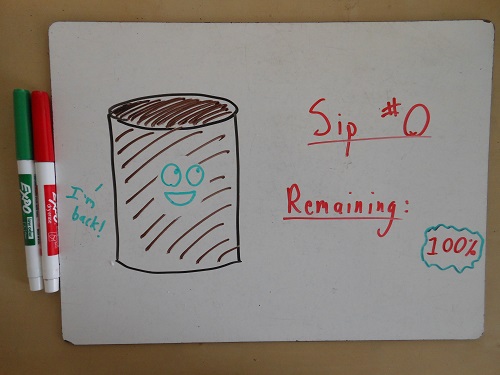 Sip #0
I'm back!
Remaining:
100%
EXPO
EXPO